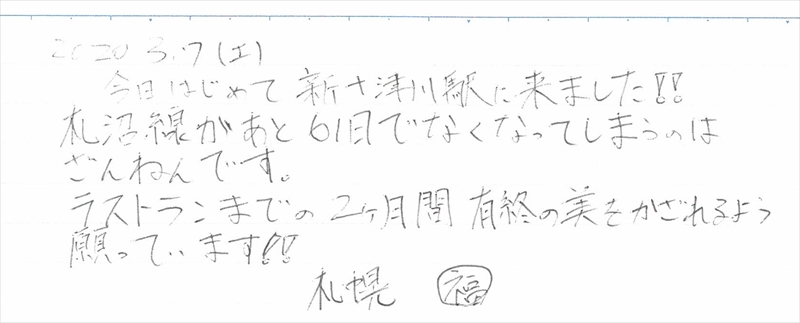 2020 3.7(土)
今日はじめて新十津川駅に来ました!!
札沼線があと61日でなくなってしまうのは
ざんねんです。
ラストランまでの2ヶ月間 有終の美をかざれるよう
願っています!!
札幌 福